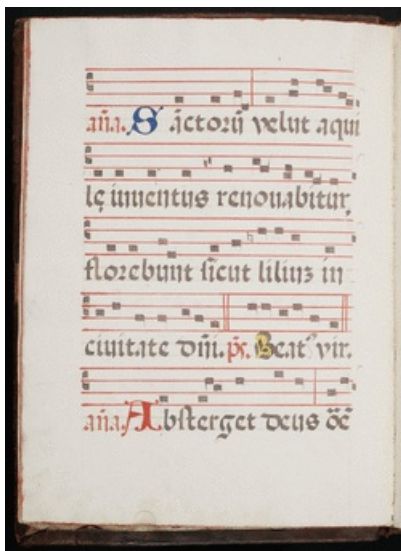 aña. Sāctorū velut aqui
lę iuuentus renouabitur,
florebunt sicut liliuȝ in
ciuitate dñi. ps. Beatꝰ vir.
aña. Absterget deus oē